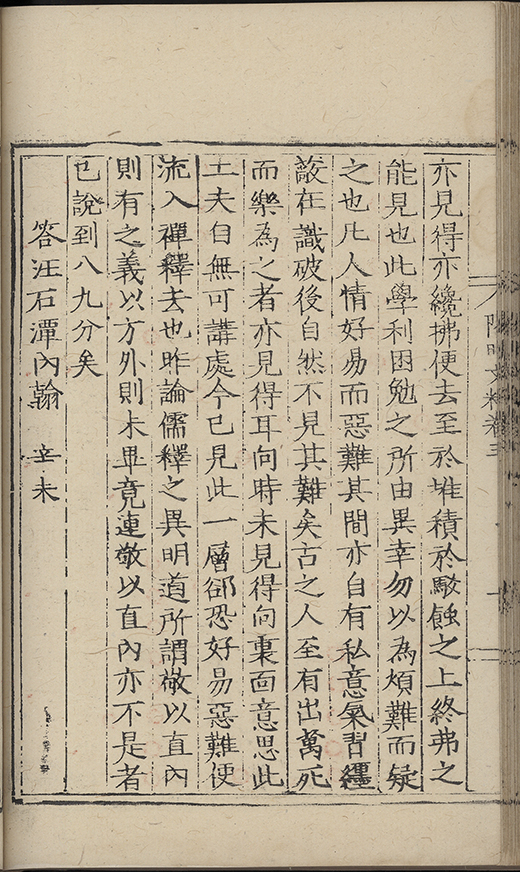 亦見得亦纔拂便去至於堆積於駁蝕之上終弗之
能見也此學利困勉之所由異幸勿以為煩難而疑
之也凡人情好易而惡難其間亦自有私意氣習纏
蔽在識破後自然不見其難矣古之人至有出萬死
而樂為之者亦見得耳向時未見得向裏面意思此
工夫自無可講處今已見此一層郤恐好易惡難便
流入禪釋去也昨論儒釋之異明道所謂敬以直內
則有之義以方外則未畢竟連敬以直內亦不是者
已說到八九分矣
答汪石潭內翰 辛未